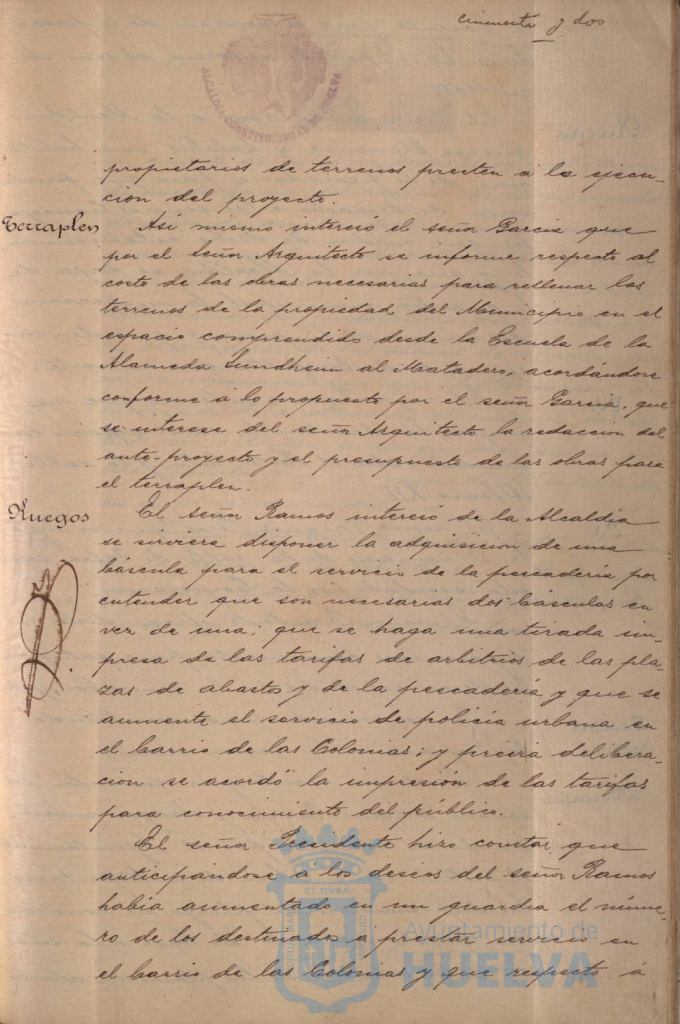 cincuenta y dos
ALCALDIA CONSTITUCIONAL DE HUELVA
propietarios de terrenos presten á la ejecu-
cion del proyecto.
Terraplen
Así mismo interesó el señor Garcia que
por el señor Arquitecto se informe respecto al
costo de las obras necesarias para rellenar los
terrenos de la propiedad del Municipio en el
espacio comprendido desde la Escuela de la
Alameda Sundheim al Matadero, acordándose
conforme á lo propuesto por el señor Garcia, que
se interese del señor Arquitecto la redaccion del
ante-proyecto y el presupuesto de las obras para
el terraplen.
Ruegos
El señor Ramos interesó de la Alcaldía
se sirviera disponer la adquisicion de una
báscula para el servicio de la pescadería por
entender que son necesarias dos básculas en
vez de una; que se haga una tirada im-
presa de las tarifas de arbitrios de las pla-
zas de abasto y de la pescadería y que se
aumente el servicio de policía urbana en
el barrio de las Colonias; y previa delibera-
cion se acordó la impresión de las tarifas
para conocimiento del público.
El señor Presidente hizo constar que
anticipándose a los deseos del señor Ramos
había aumentado en un guardia el núme-
ro de los destinados a prestar servicio en
el barrio de las Colonias y que respecto á
Ayuntamiento de
HUELVA